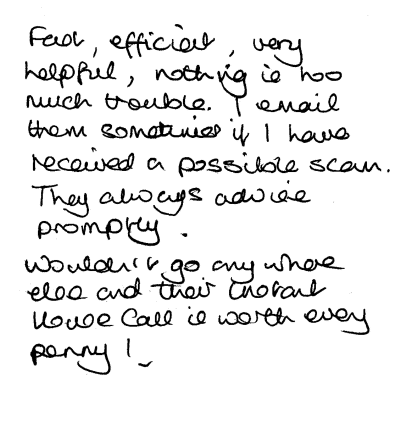 Fast, efficient, very
helpful, nothing is too
much trouble. I email
them sometimes if I have
received a possible scam.
They always advise
promptly.
Wouldn't go any where
else and their Instant
House Call is worth every
penny!